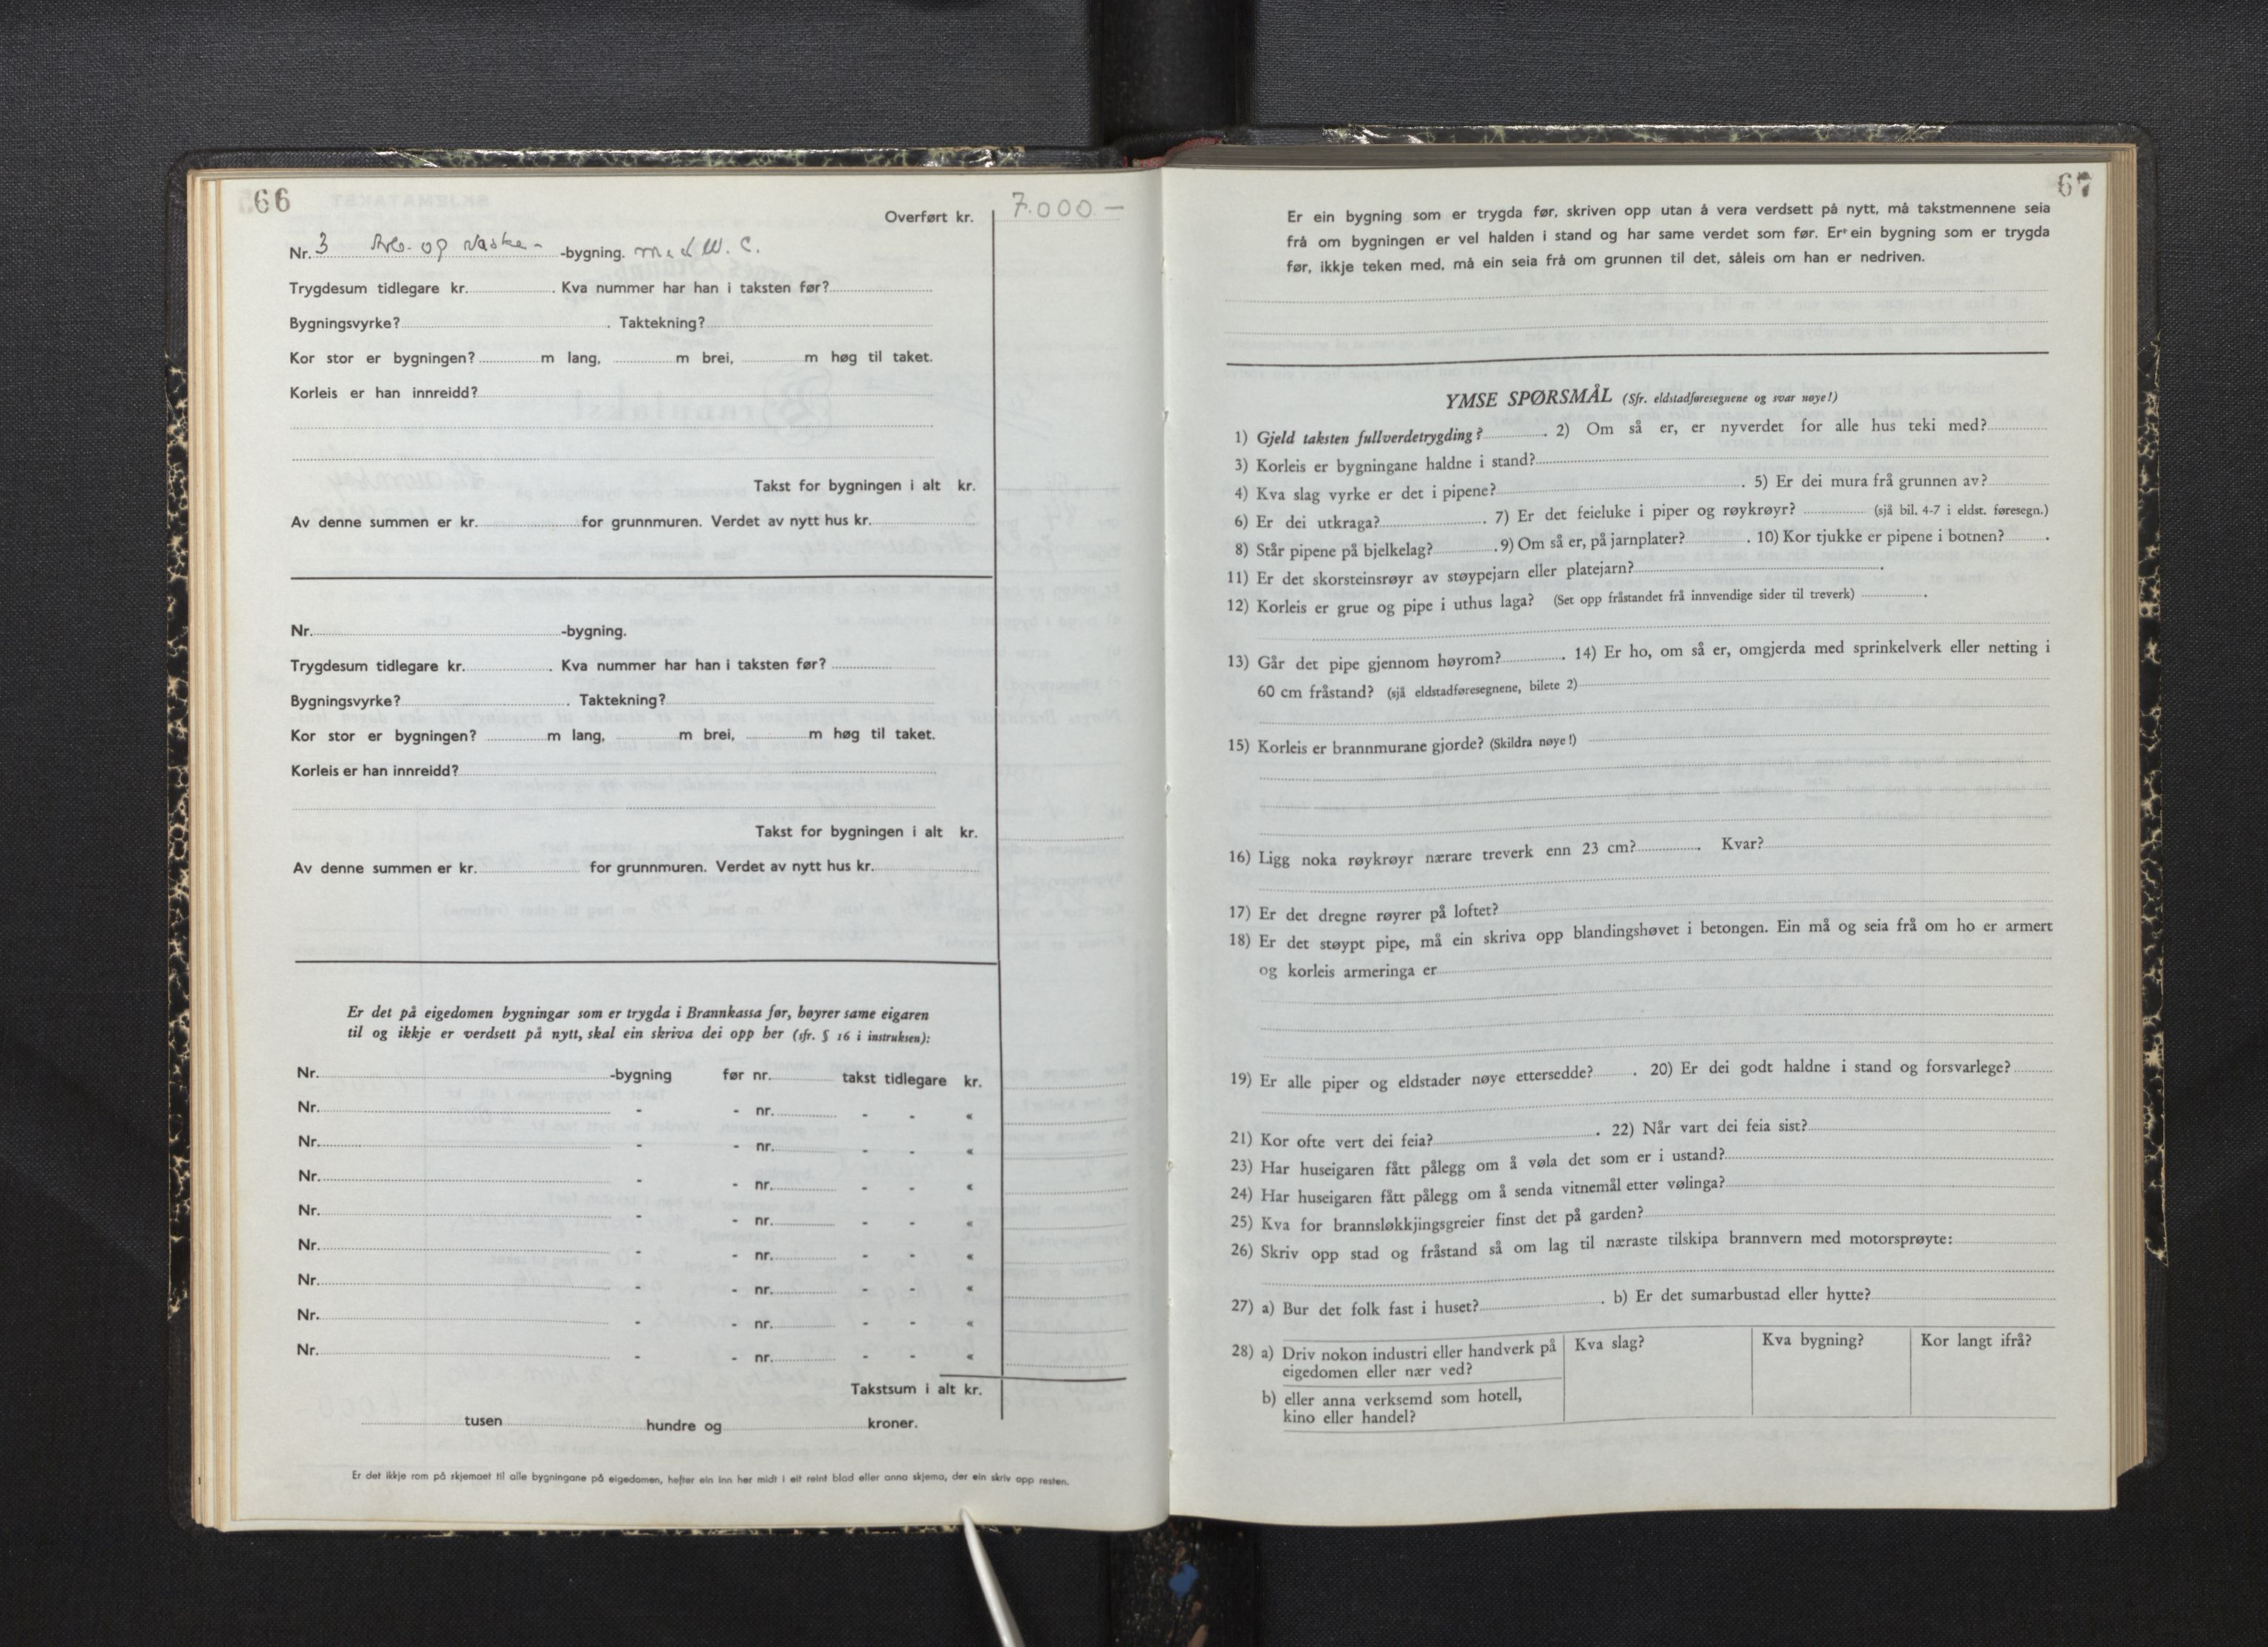 66
Overført kr. 7.000 –
Nr. 3 Arb. og Vaske- -bygning. med W. C.
Trygdesum tidlegare kr. . Kva nummer har han i taksten før?
Bygningsvyrke? . Taktekning?
Kor stor er bygningen? m lang, m brei, m høg til taket.
Korleis er han innreidd?
Takst for bygningen i alt kr.
Av denne summen er kr. for grunnmuren. Verdet av nytt hus kr.
Nr. -bygning.
Trygdesum tidlegare kr. . Kva nummer har han i taksten før?
Bygningsvyrke? . Taktekning?
Kor stor er bygningen? m lang, m brei, m høg til taket.
Korleis er han innreidd?
Takst for bygningen i alt kr.
Av denne summen er kr. for grunnmuren. Verdet av nytt hus kr.
Er det på eigedomen bygningar som er trygda i Brannkassa før, høyrer same eigaren
til og ikkje er verdsett på nytt, skal ein skriva dei opp her (sfr. § 16 i instruksen):
Nr. -bygning før nr. takst tidlegare kr.
Nr. - - nr. - - «
Nr. - - nr. - - «
Nr. - - nr. - - «
Nr. - - nr. - - «
Nr. - - nr. - - «
Nr. - - nr. - - «
Nr. - - nr. - - «
Nr. - - nr. - - «
Takstsum i alt kr.
tusen hundre og kroner.
Er det ikkje rom på skjemaet til alle bygningane på eigedomen, hefter ein inn her midt i eit reint blad eller anna skjema, der ein skriv opp resten.
67
Er ein bygning som er trygda før, skriven opp utan å vera verdsett på nytt, må takstmennene seia
frå om bygningen er vel halden i stand og har same verdet som før. Er ein bygning som er trygda
før, ikkje teken med, må ein seia frå om grunnen til det, såleis om han er nedriven.
YMSE SPØRSMÅL (Sfr. eldstadføresegnene og svar nøye!)
1) Gjeld taksten fullverdetrygding? . 2) Om så er, er nyverdet for alle hus teki med?
3) Korleis er bygningane haldne i stand?
4) Kva slag vyrke er det i pipene? . 5) Er dei mura frå grunnen av?
6) Er dei utkraga? . 7) Er det feieluke i piper og røykrøyr? (sjå bil. 4-7 i eldst. føresegn.)
8) Står pipene på bjelkelag? . 9) Om så er, på jarnplater? . 10) Kor tjukke er pipene i botnen? .
11) Er det skorsteinsrøyr av støypejarn eller platejarn? .
12) Korleis er grue og pipe i uthus laga? (Set opp fråstandet frå innvendige sider til treverk) .
13) Går det pipe gjennom høyrom? . 14) Er ho, om så er, omgjerda med sprinkelverk eller netting i
60 cm fråstand? (sjå eldstadføresegnene, bilete 2)
15) Korleis er brannmurane gjorde? (Skildra nøye!)
16) Ligg noka røykrøyr nærare treverk enn 23 cm? . Kvar?
17) Er det dregne røyrer på loftet?
18) Er det støypt pipe, må ein skriva opp blandingshøvet i betongen. Ein må og seia frå om ho er armert
og korleis armeringa er
19) Er alle piper og eldstader nøye ettersedde? . 20) Er dei godt haldne i stand og forsvarlege?
21) Kor ofte vert dei feia? . 22) Når vart dei feia sist?
23) Har huseigaren fått pålegg om å vøla det som er i ustand?
24) Har huseigaren fått pålegg om å senda vitnemål etter vølinga?
25) Kva for brannsløkkjingsgreier finst det på garden?
26) Skriv opp stad og fråstand så om lag til næraste tilskipa brannvern med motorsprøyte:
27) a) Bur det folk fast i huset? . b) Er det sumarbustad eller hytte?
28) a) Driv nokon industri eller handverk på Kva slag? Kva bygning? Kor langt ifrå?
eigedomen eller nær ved?
b) eller anna verksemd som hotell,
kino eller handel?